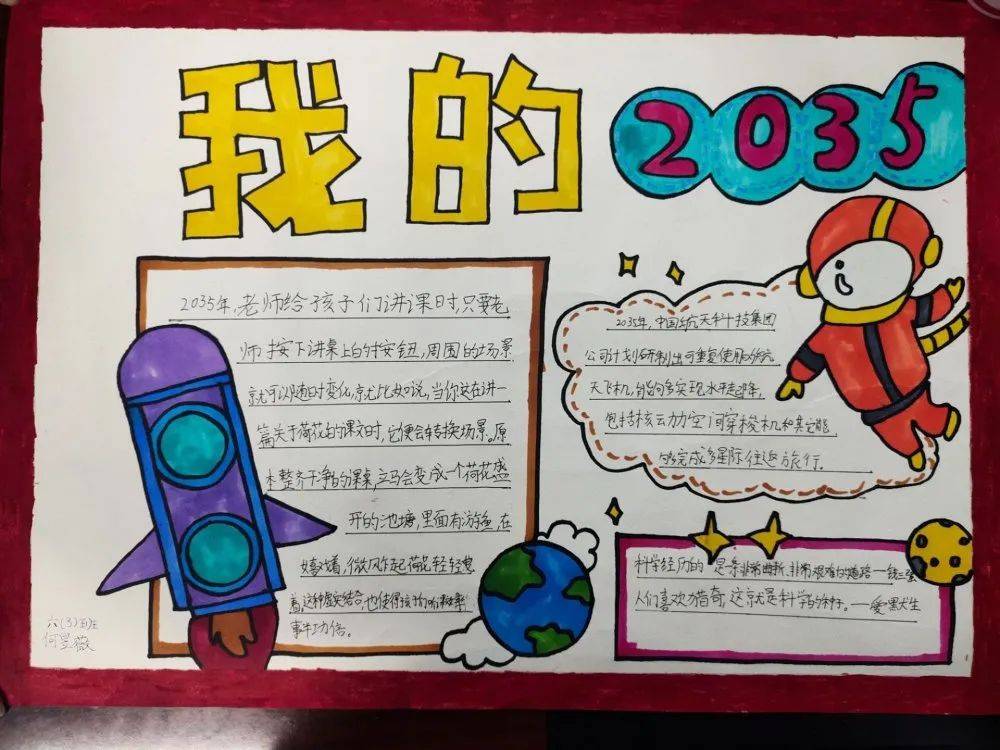 我的2035
2035年,老师给孩子们讲课时,只要老
师按下讲桌上的按钮,周围的场景
就可以随时变化,就比如说,当你在讲一
篇关于荷花的课文时,它便会转换场景。原
本整齐干净的课桌,立马会变成一个荷花盛
开的池塘,里面有游鱼,在
嬉戏着,微风吹起荷花轻轻
着,这种虚实结合,也使得孩子们听课
事半功倍。
2035年,中国航天科技集团
公司计划研制出可重复使用的航
天飞机,能够多实现水平起降,
包括核动力空间穿梭机和其它能
够完成多星际往返旅行.
科学经历的 是条非常曲折、非常艰难的道路一钱三强
人们喜欢猎奇,这就是科学的种子.一爱默生
六(3)班
何昱薇